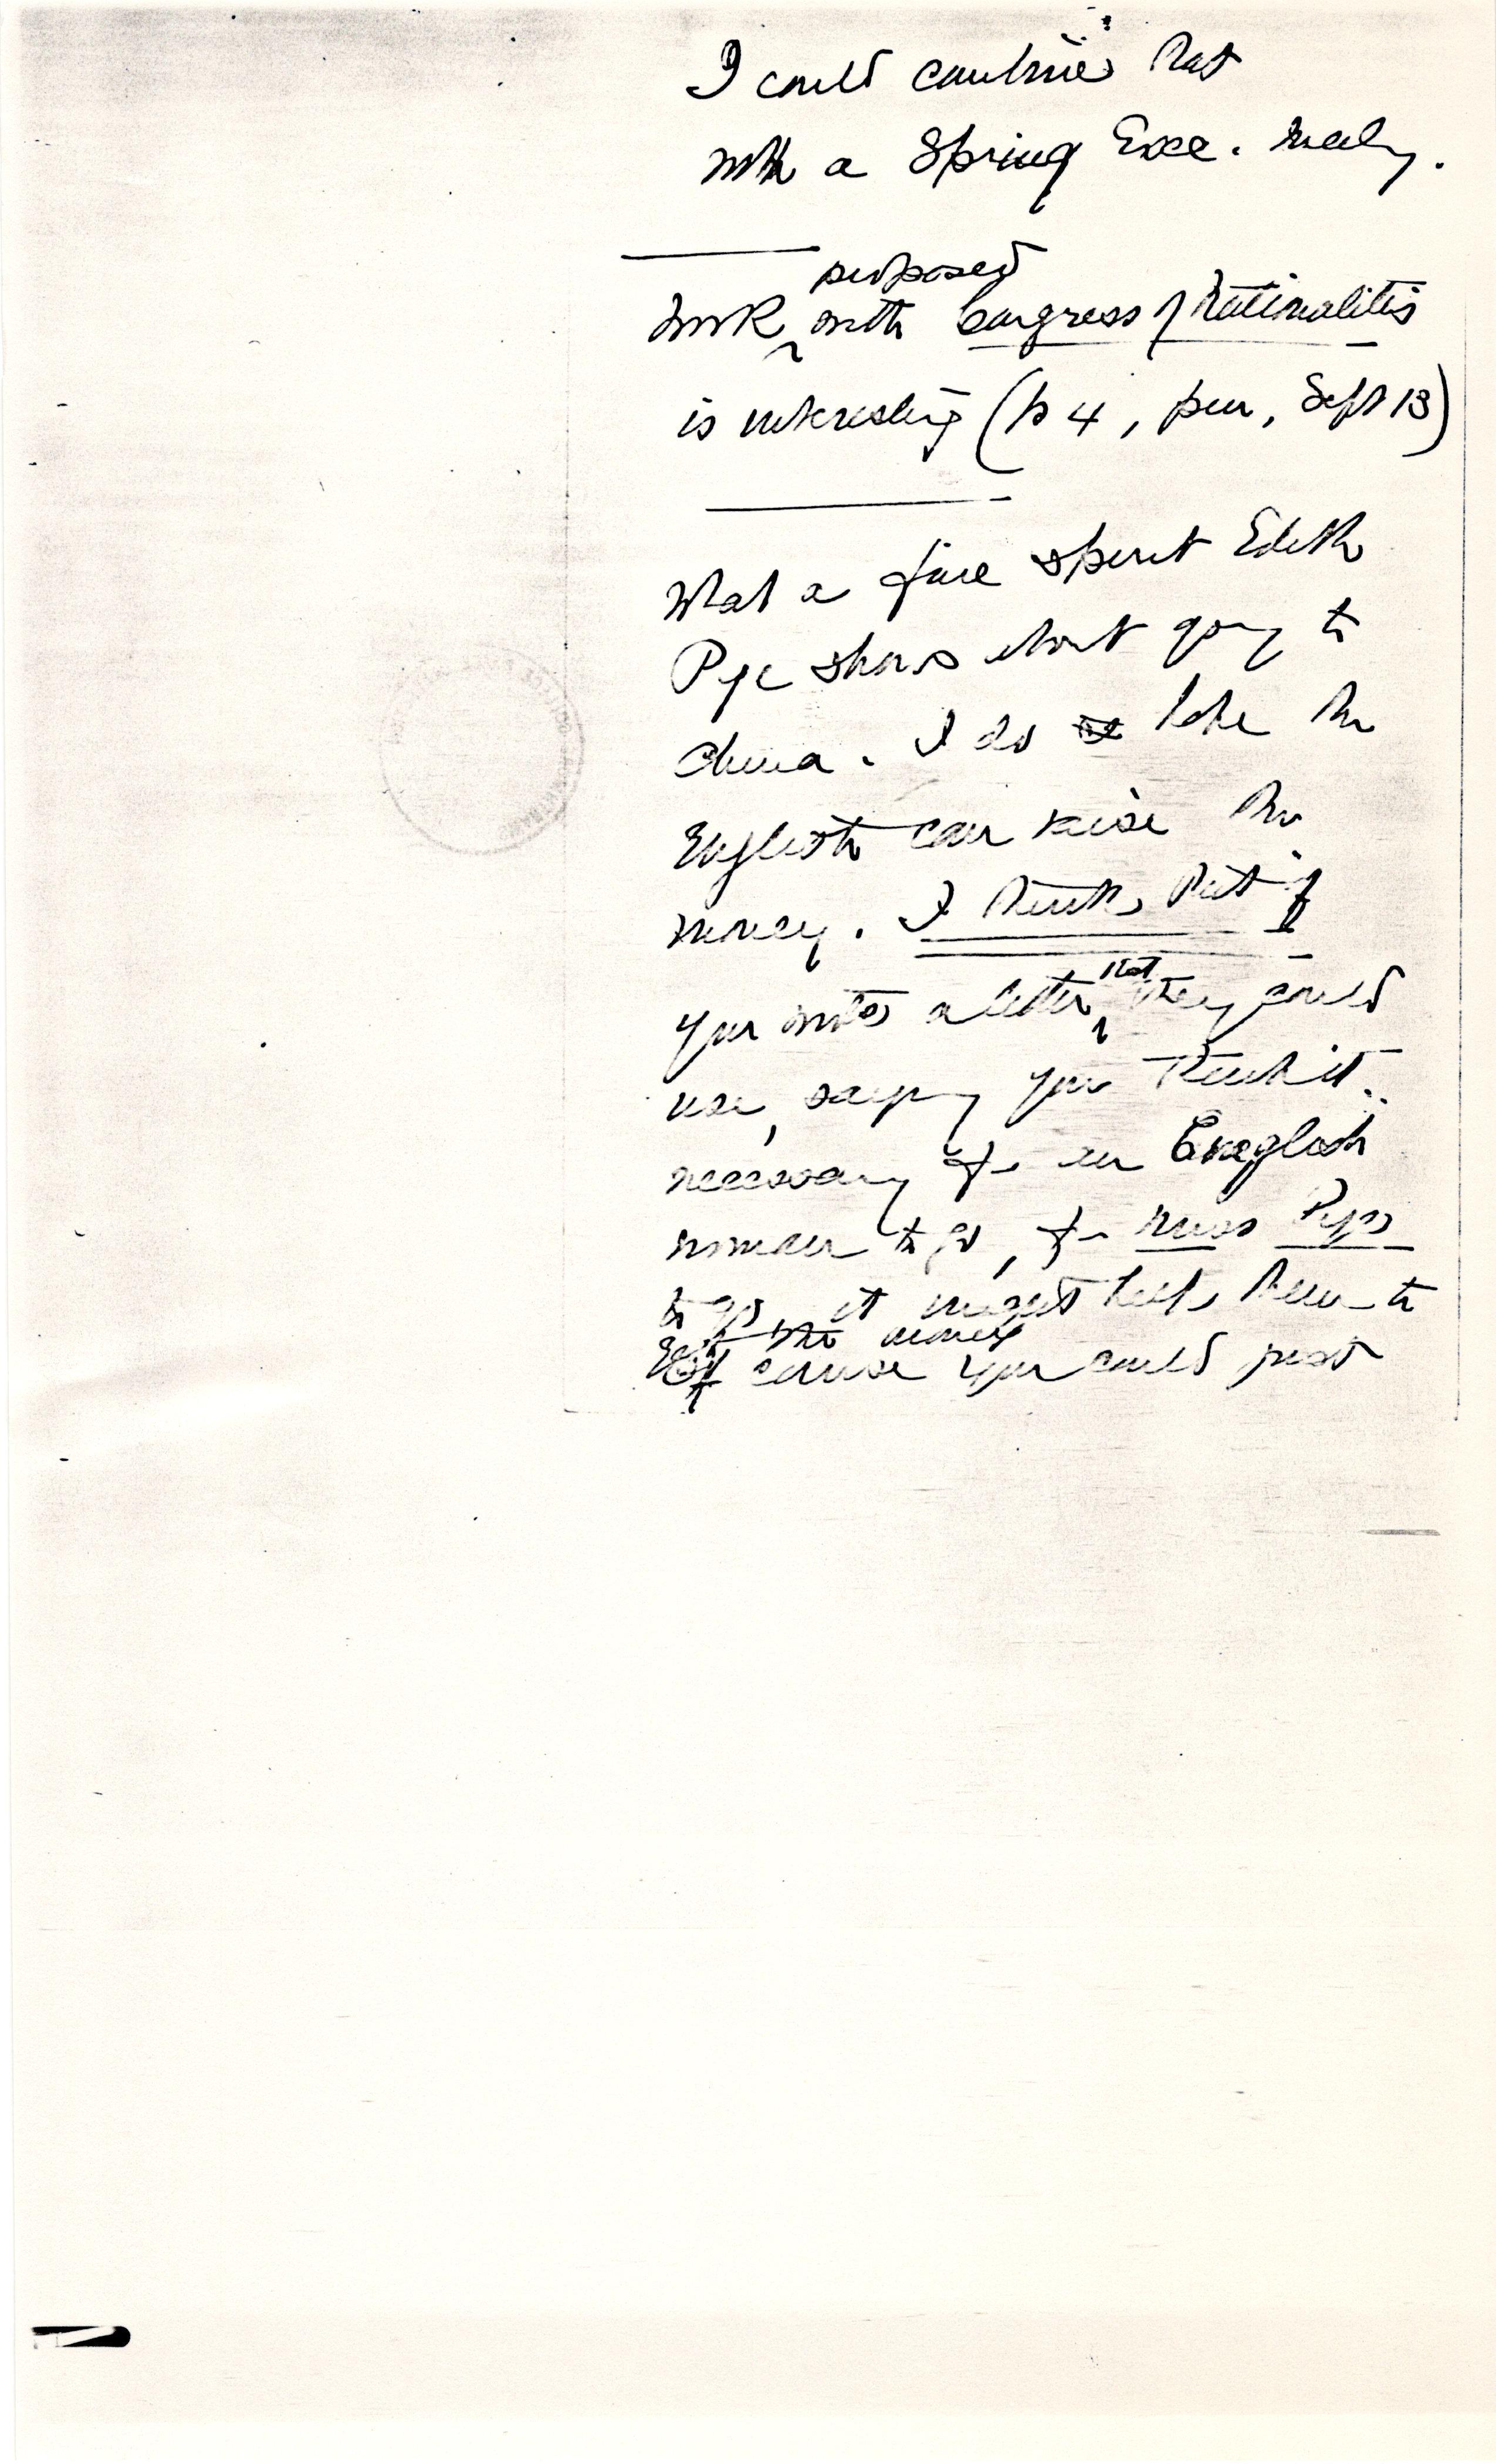 I could combine that
with a Spring Exec. meetg.
proposed
Work with Congress of Nationalities
is interesting (p 4, pen, Sept 13)
What a fine spirit Edith
Pye shows about going to
China. I do hope the
English can raise the
money. I think that if
you wrote a letter that they could
use, saying you think it
necessary for an English
woman to go, for Miss Pye
to go, it might help them to
get the money
Of course you could just